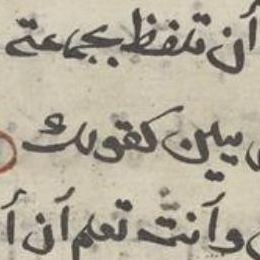 أن تلفظ بجماعة
يبين كقولك
وأنت تعلم أن أ